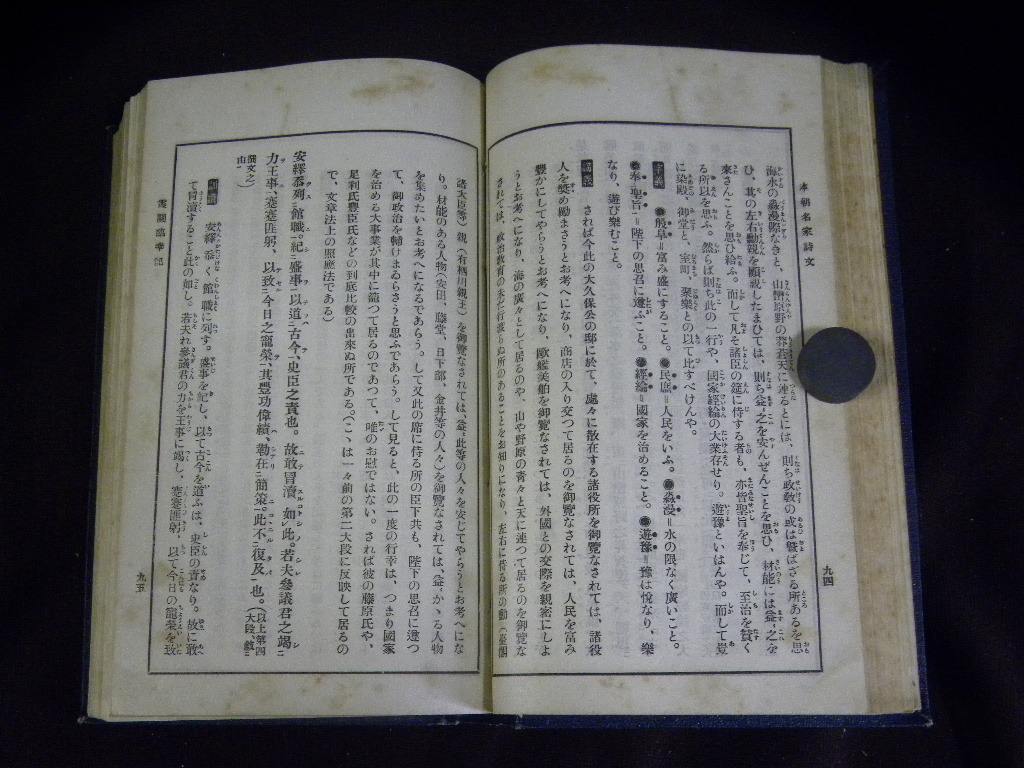 本朝名家詩文
九四
海水の淼漫際なきと、山巒原野の蒼蒼天に連るとには、則ち政教の或は曁ばざる所あるを思
ひ、其の左右勳親を顧視したまひては、則ち益〻之を安んぜんことを思ひ、材能には益〻之を
來さんことを思ひ給ふ。而して凡そ諸臣の筵に侍する者も、亦皆聖旨を奉じて、至治を賛く
る所以を思ふ。然らば則ち此の一行や、國家經綸の大業存せり。遊豫といはんや。而して豈
に染殿、御堂と、室町、聚樂との以て比すべけんや。
字義 ●殷阜=富み盛にすること。●民庶=人民をいふ。●淼漫=水の限なく廣いこと。
●奉聖旨=陛下の思召に遵ふこと。●經綸=國家を治めること。●遊豫=豫は悅なり、樂
なり、遊び樂むこと。
講義 されば今此の大久保公の邸に於て、處々に散在する諸役所を御覽なされては、諸役
人を奬め勵まさうとお考へになり、商店の入り交つて居るのを御覽なされては、人民を富み
豐かにしてやらうとお考へになり、歐艦美舶を御覽なされては、外國との交際を親密にしよ
うとお考へになり、海の廣々として居るのや、山や野原の靑々と天に連つて居るのを御覽な
されては、政治敎育の未だ行渡らぬ所のあることをお知りになり、左右に侍る所の勳(臺閣
諸大臣等)親(有栖川親王)を御覽なされては、益〻此等の人々を安じてやらうとお考へにな
り。材能のある人物(安田、藤堂、日下部、金井等の人々)を御覽なされては、益〻かゝる人物
を集めたいとお考へになるであらう。して又此の席に侍る所の臣下共も、陛下の思召に遵つ
て、御政治を輔けまゐらさうと思ふであらう。して見ると、此の一度の行幸は、つまり國家
を治める大事業が其中に籠つて居るのであつて、唯のお慰ではない。されば彼の藤原氏や、
足利氏豐臣氏などの到底比較の出來ぬ所である。(こゝは一々前の第二大段に反映して居るの
で、文章法上の照應法である)
安繹忝列館職。紀盛事以道古今、史臣之責也。故敢冒瀆如此。若夫參議君之竭
力王事、蹇蹇匪躬、以致今日之寵榮、其豐功偉績、勒在簡策。此不復及也。(以上第四大段、敍
撰文之由)
訓讀 安繹忝く館職に列す。盛事を紀し、以て古今を道ふは、史臣の責なり。故に敢
て冒瀆すること此の如し。若夫れ參議君の力を王事に竭し、蹇蹇匪躬、以て今日の寵榮を致
霞關臨幸記
九五